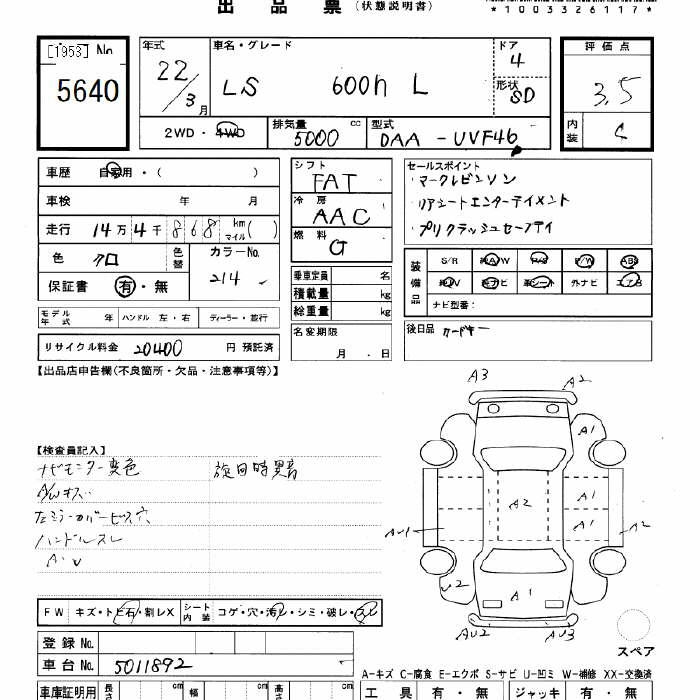 出 品 票 (状態説明書)
*1003326117*
[1953] No
5640
年式 22/3月
車名・グレード LS 600h L
ドア 4
形状 SD
評価点 3.5
内装 C
2WD・4WD
排気量 5000 cc
型式 DAA - UVF46
車歴 自家用・( )
車検 年 月
走行 14万4千868 km マイル( )
色 クロ 色替
カラーNo. 214
保証書 有・無
シフト FAT
冷房 AAC
燃料 G
乗車定員 名
積載量 kg
総重量 kg
セールスポイント
・マークレビンソン
・リアシートエンターテイメント
・プリクラッシュセーフティ
装備品
S/R 純AW P/S P/W ABS
純TV 純ナビ 革シート 外ナビ エアB
ナビ型番:
モデル年式 年 ハンドル 左・右 ディーラー・並行
名変期限 月・日
後日品 カードキー
リサイクル料金 20400 円 預託済
【出品店申告欄(不良箇所・欠品・注意事項等)】
【検査員記入】
ナビモニター変色 旋回時異音
A/Wキズ
左ミラーカバービス穴
ハンドルスレ
A・U
A3 A2
A1
A2 A1
A1
AU1 A2
U2
A1
AU2 AU3
スペア
FW キズ・トビ石・割レX シート内装 コゲ・穴・汚レ・シミ・破レ・スレ
登録 No.
車台 No. 5011892
A−キズ C−腐食 E−エクボ S−サビ U−凹ミ W−補修 XX−交換済
車庫証明用 長さ cm 幅 cm 高さ cm
工具 有・無 ジャッキ 有・無